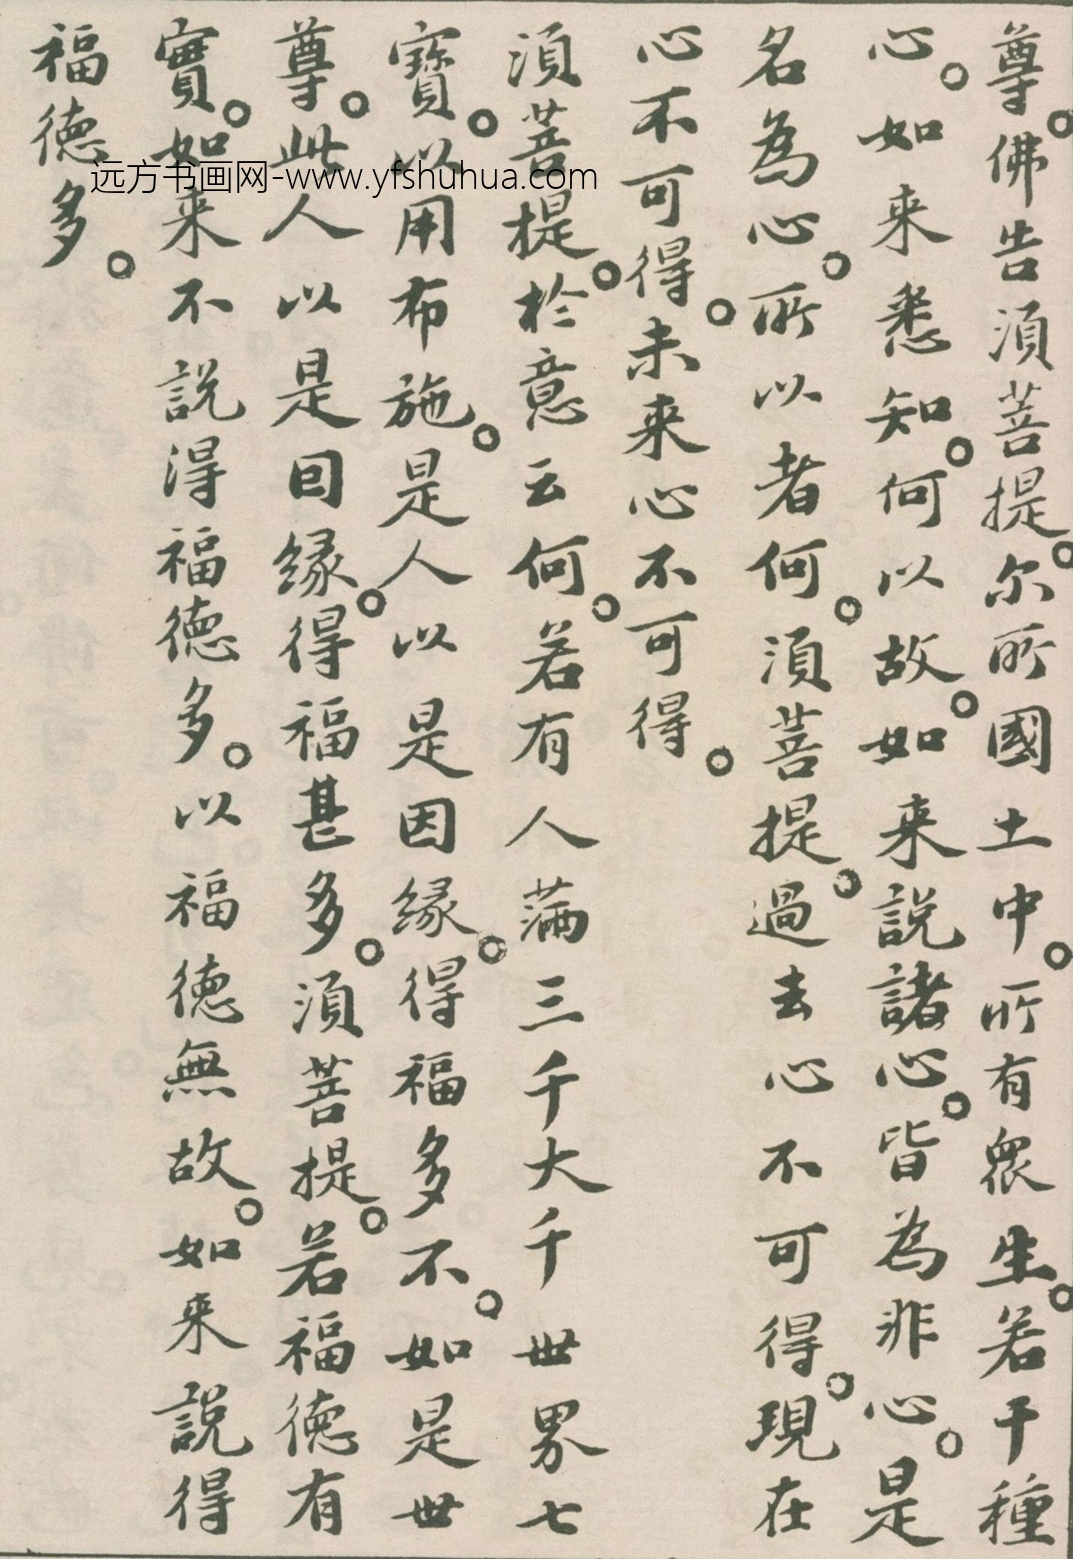 尊。佛告須菩提。尔所國土中。所有眾生。若干種
心。如来悉知。何以故。如来說諸心。皆為非心。是
名為心。所以者何。須菩提。過去心不可得。現在
心不可得。未来心不可得。
須菩提。於意云何。若有人滿三千大千世界七
寶。以用布施。是人以是因緣。得福多不。如是世
尊。此人以是因緣。得福甚多。須菩提。若福德有
實。如来不說得福德多。以福德無故。如来說得
福德多。
远方书画网-www.yfshuhua.com